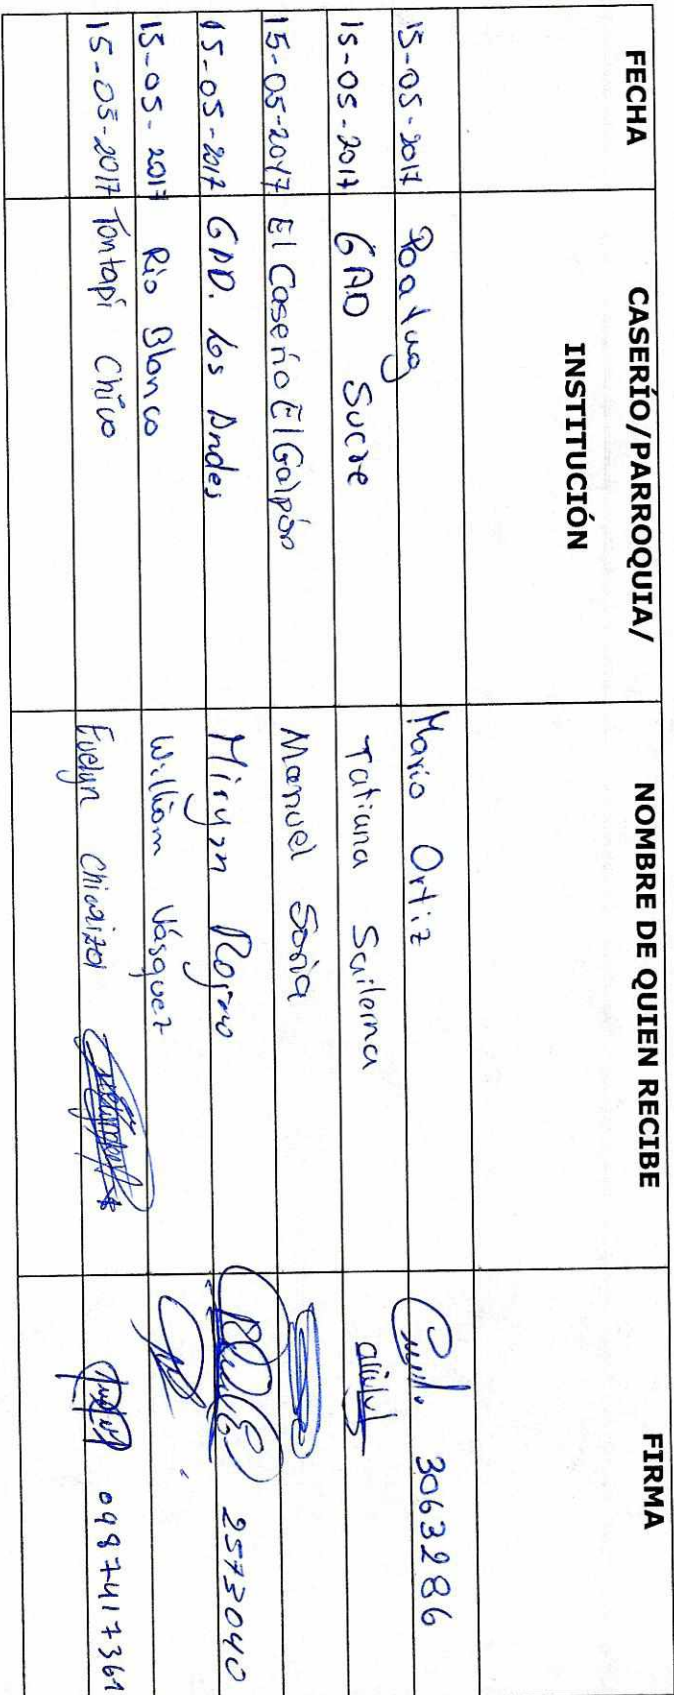 FECHA
CASERÍO/PARROQUIA/
INSTITUCIÓN
NOMBRE DE QUIEN RECIBE
FIRMA
15-05-2017 Poatug Mario Ortiz 3063286
15-05-2017 GAD Sucre Tatiana Sailema
15-05-2017 El Caserío El Galpón Manuel Soria
15-05-2017 GAD. Los Andes Miryan 2573040
15-05-2017 Río Blanco William Vásquez
15-05-2017 Tontapí Chico Evelyn Chicaiza 0987417361